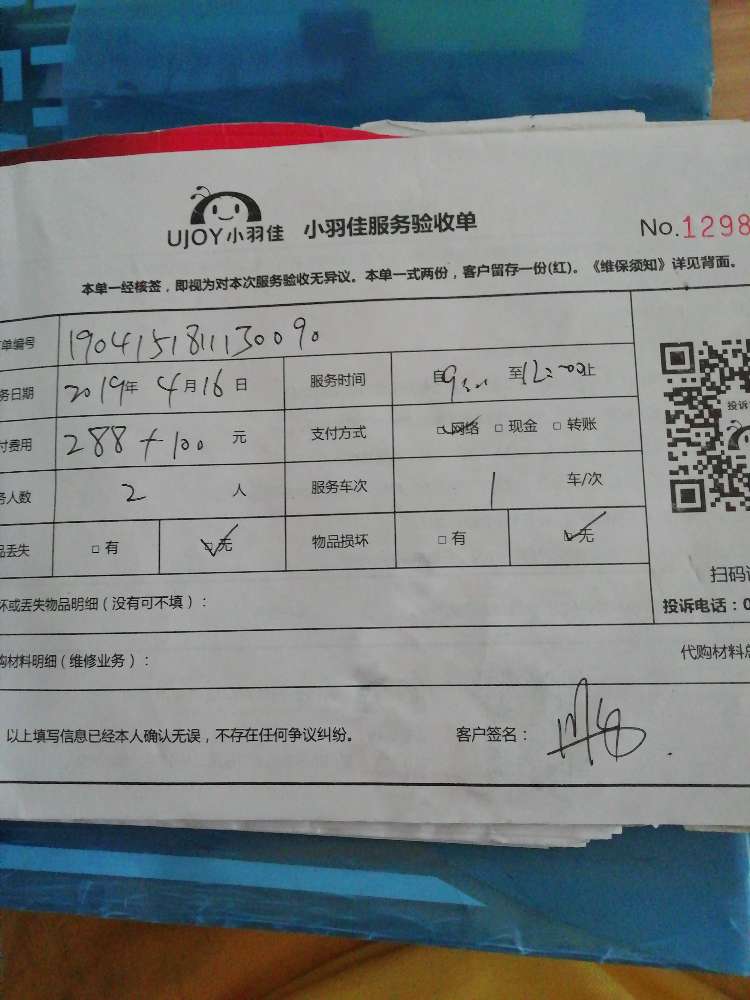 UJOY小羽佳 小羽佳服务验收单 No.1298
本单一经核签，即视为对本次服务验收无异议。本单一式两份，客户留存一份(红)。《维保须知》详见背面。
单编号 1904151811130090
务日期 2019年 4月16日 服务时间 自9:00 至12:00止
付费用 288+100 元 支付方式 网络 现金 转账
务人数 2 人 服务车次 1 车/次
品丢失 有 无 物品损坏 有 无
投诉
扫码
投诉电话：0
坏或丢失物品明细（没有可不填）：
购材料明细（维修业务）： 代购材料总
以上填写信息已经本人确认无误，不存在任何争议纠纷。 客户签名：